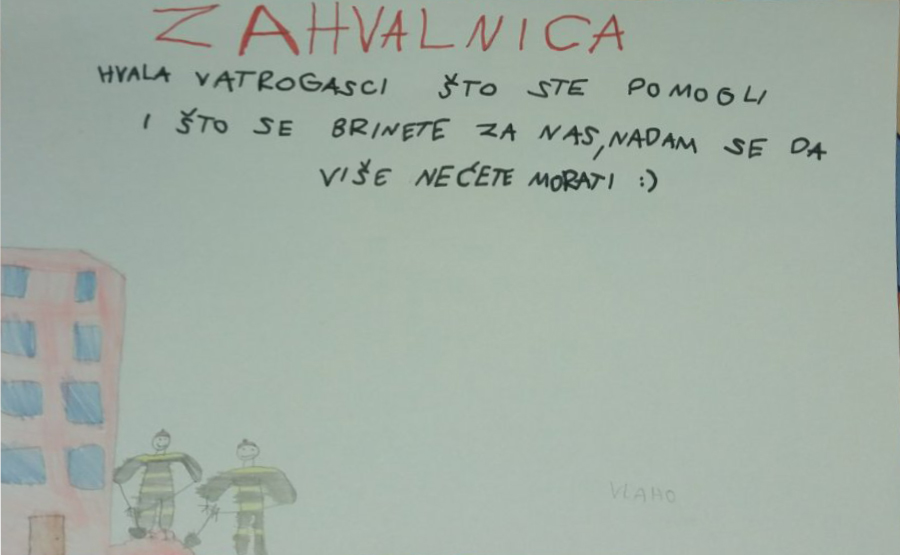 ZAHVALNICA
HVALA VATROGASCI ŠTO STE POMOGLI
I ŠTO SE BRINETE ZA NAS, NADAM SE DA
VIŠE NEĆETE MORATI :)
VLAHO